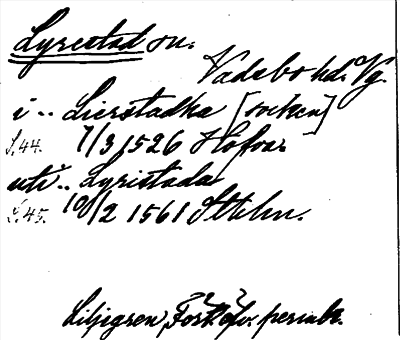 Lyrestad sn.
Vadsbo hd. Vg.
i .. Lierstadha [socken]
S. 44. 7/3 1526 Hofva.
uti .. Lyristada
S. 45. 10/2 1561 Sthlm.
Liljegren, Fört. öfv. permbr.